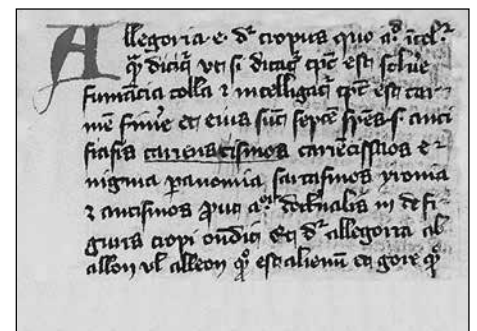 Allegoria e. dr tropus quo ad intel
qd dicitur ut si dicatur tpc est solue
fumancia colla & intelligatur tpc est car
me finire et eius sunt septe spes s. anti
frasis carientismos
nigma paroimia sarcasmos yronia
& antismos put a. doctrinalis in de fi
guris tropi ondit Et dr allegoria ab
allon ul alleon qd est alienu et gore qd